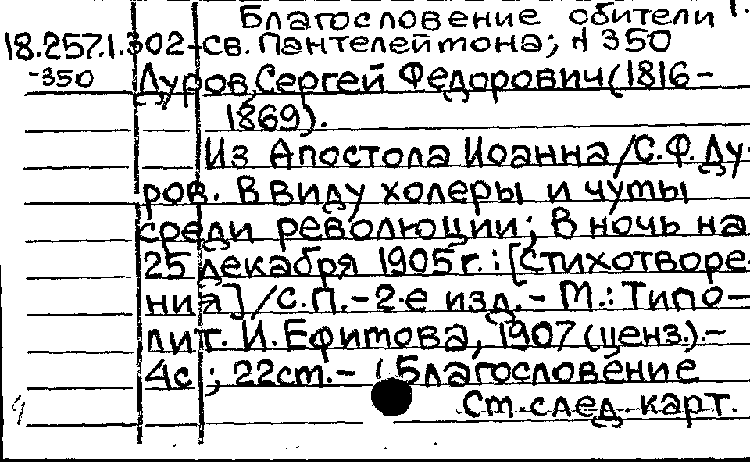 Благословение обители 1.
18.257.1.302-св. Пантелеймона; № 350
-350 Дуров, Сергей Федорович (1816-
1869).
Из Апостола Иоанна /С.Ф. Ду-
ров. В виду холеры и чумы
среди революции; В ночь на
25 декабря 1905 г.: [Стихотворе-
ния] /С.П.-2-е изд.- М.: Типо-
лит. И. Ефимова, 1907 (ценз.).-
4с.; 22см.- (Благословение
См. след. карт.